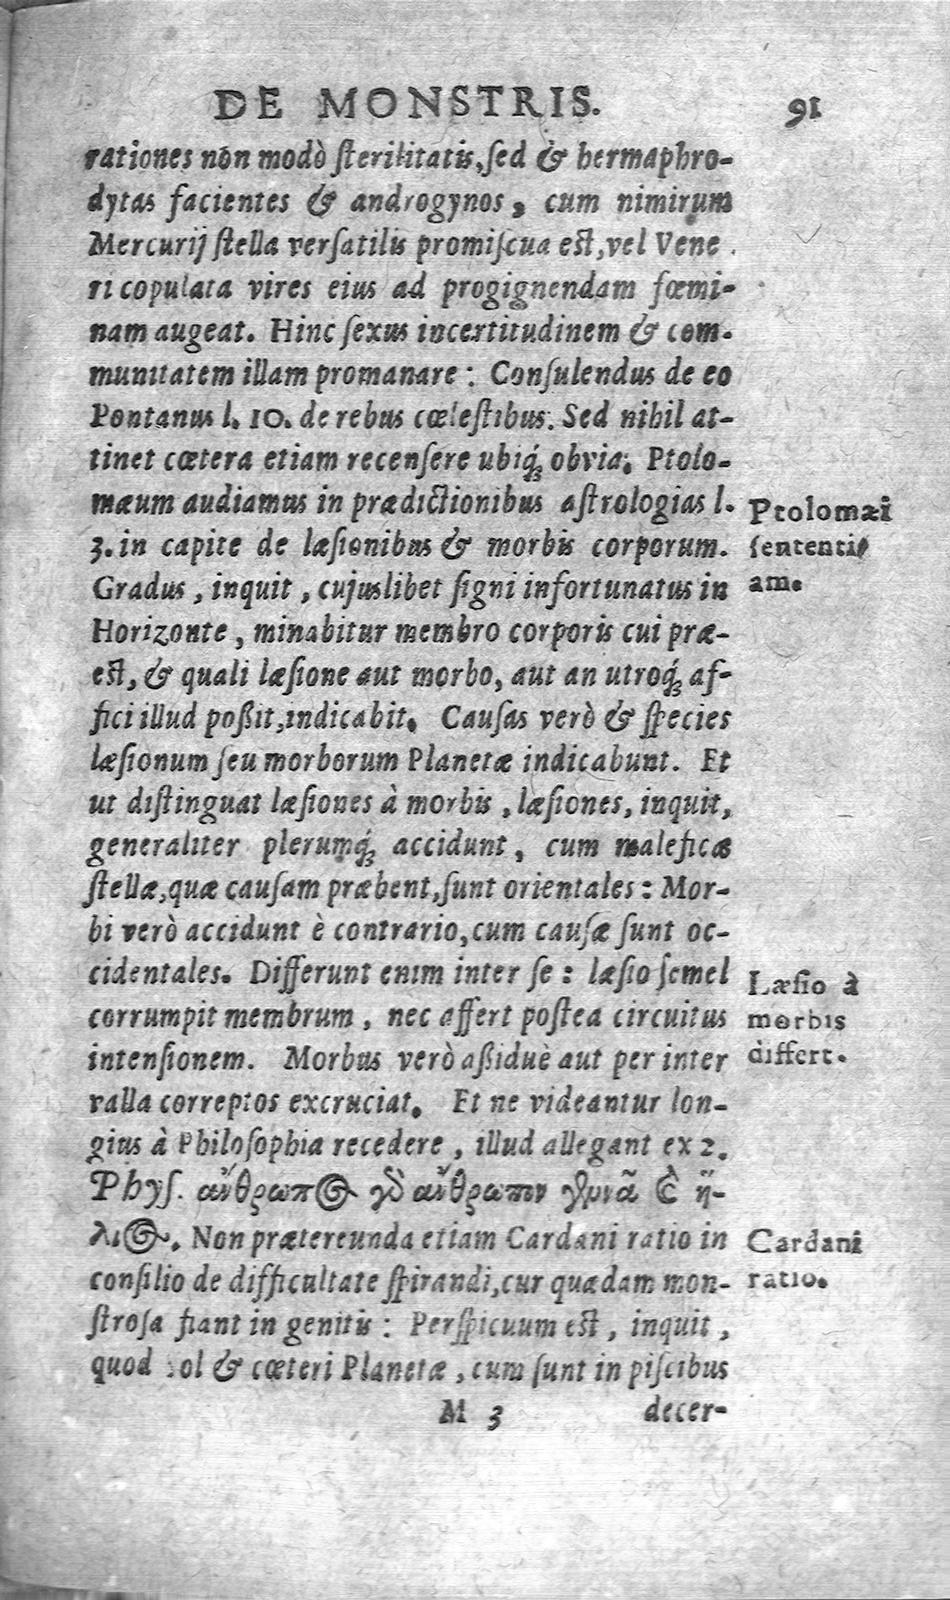 DE MONSTRIS. 91
rationes non modò sterilitatis, sed & hermaphro-
dytas facientes & androgynos, cum nimirum
Mercurij stella versatilis promiscua est, vel Vene
ri copulata vires eius ad progignendam fœmi-
nam augeat. Hinc sexus incertitudinem & com-
munitatem illam promanare: Consulendus de eo
Pontanus l. 10. de rebus cœlestibus. Sed nihil at-
tinet cœtera etiam recensere ubiq́; obvia. Ptolo-
mæum audiamus in prædictionibus astrologias l.
Ptolomæi
3. in capite de læsionibus & morbis corporum.
sententi
Gradus, inquit, cujuslibet signi infortunatus in
am.
Horizonte, minabitur membro corporis cui præ-
est, & quali læsione aut morbo, aut an utroq́; af-
fici illud poßit, indicabit. Causas verò & species
læsionum seu morborum Planetæ indicabunt. Et
ut distinguat læsiones à morbis, læsiones, inquit,
generaliter plerumq́; accidunt, cum maleficæ
stellæ, quæ causam præbent, sunt orientales: Mor-
bi verò accidunt è contrario, cum causæ sunt oc-
cidentales. Differunt enim inter se: læsio semel
Læsio à
corrumpit membrum, nec affert postea circuitus
morbis
intensionem. Morbus verò aßiduè aut per inter
differt.
valla correptos excruciat. Et ne videantur lon-
gius à Philosophia recedere, illud allegant ex 2.
Phys. ἄνθρωπος γὸ ἄνθρωπον γεννᾶ καὶ ἥ-
λιος. Non prætereunda etiam Cardani ratio in
Cardani
consilio de difficultate spirandi, cur quædam mon-
ratio.
strosa fiant in genitis: Perspicuum est, inquit,
quod ol & cœteri Planetæ, cum sunt in piscibus
M 3 decer-